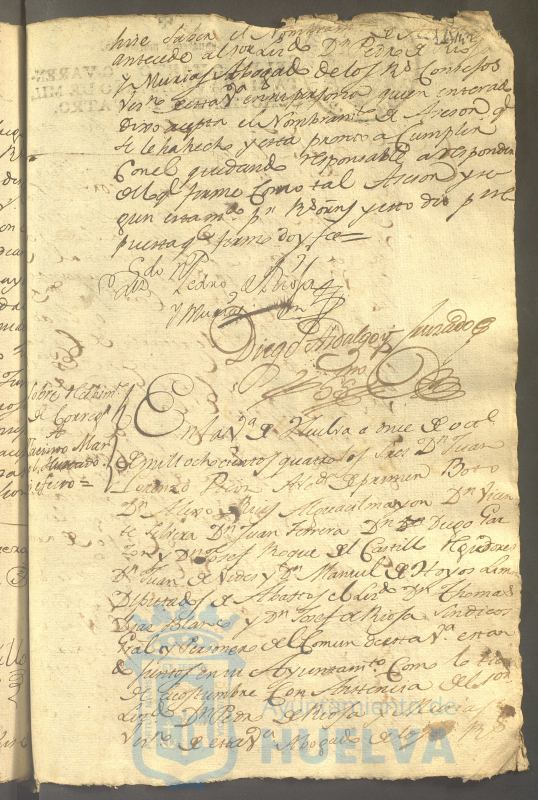 hise saber el Nombram.to de
antecede al Lizdo Dn Pedro de Rioja
y Murias Abogado de los Rs Consejos
Vezno de esta Va en su persona quien enterado
dixo acepta el Nombramto de Asesor q
se le ha hecho y esta pronto a Cumplir
Con el quedando responsable a responder
de lo q firme Como tal Asesor y se
y esto dio p res
puesta q firmo doy fee=
Pedro de Rioja
y Murias
Diego Hidalgo y Jurado
Sobre
de Correo
A
Jacinto Mar
Hurtado
En la Va de Huelva a once de oct
de mill ochocientos quatro los Sres Dn Juan
Lorenzo Alcde de primer Boto
Dn Alexo Ruiz Alguacil mayor Dn Vicen
te Dn Juan Ferrera Dn Diego Gar
zon y Dn Josef Roque del Castillo Rexidores
Dn Juan de y Dn Manuel de Hoyos Limon
Diputados de Abastos el Lizdo Dn Thomas
Diaz Blanco y Dn Josef de Rioja Sindicos
Gral y Personero del Comun de esta Va estan
do Juntos en su Ayuntamto Como lo tie
de Costumbre Con Asistencia del Sor
Lizdo Dn Pedro de Rioja y Murias
Vezno de esta Va Abogado de los Rs
Ayuntamiento de
HUELVA